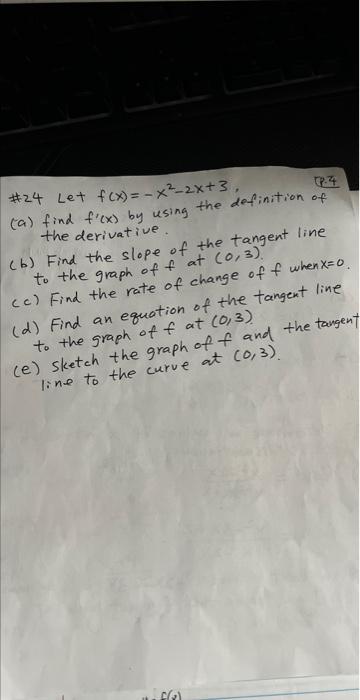 P.4
#24 Let f(x) = -x²-2x+3,
(a) find f'(x) by using the definition of
the derivative.
(b) Find the slope of the tangent line
to the graph of f at (0,3).
(c) Find the rate of change of f when x=0.
(d) Find an equation of the tangent line
to the graph of f at (0,3)
(e) Sketch the graph of f and the tangent
line to the curve at (0,3).